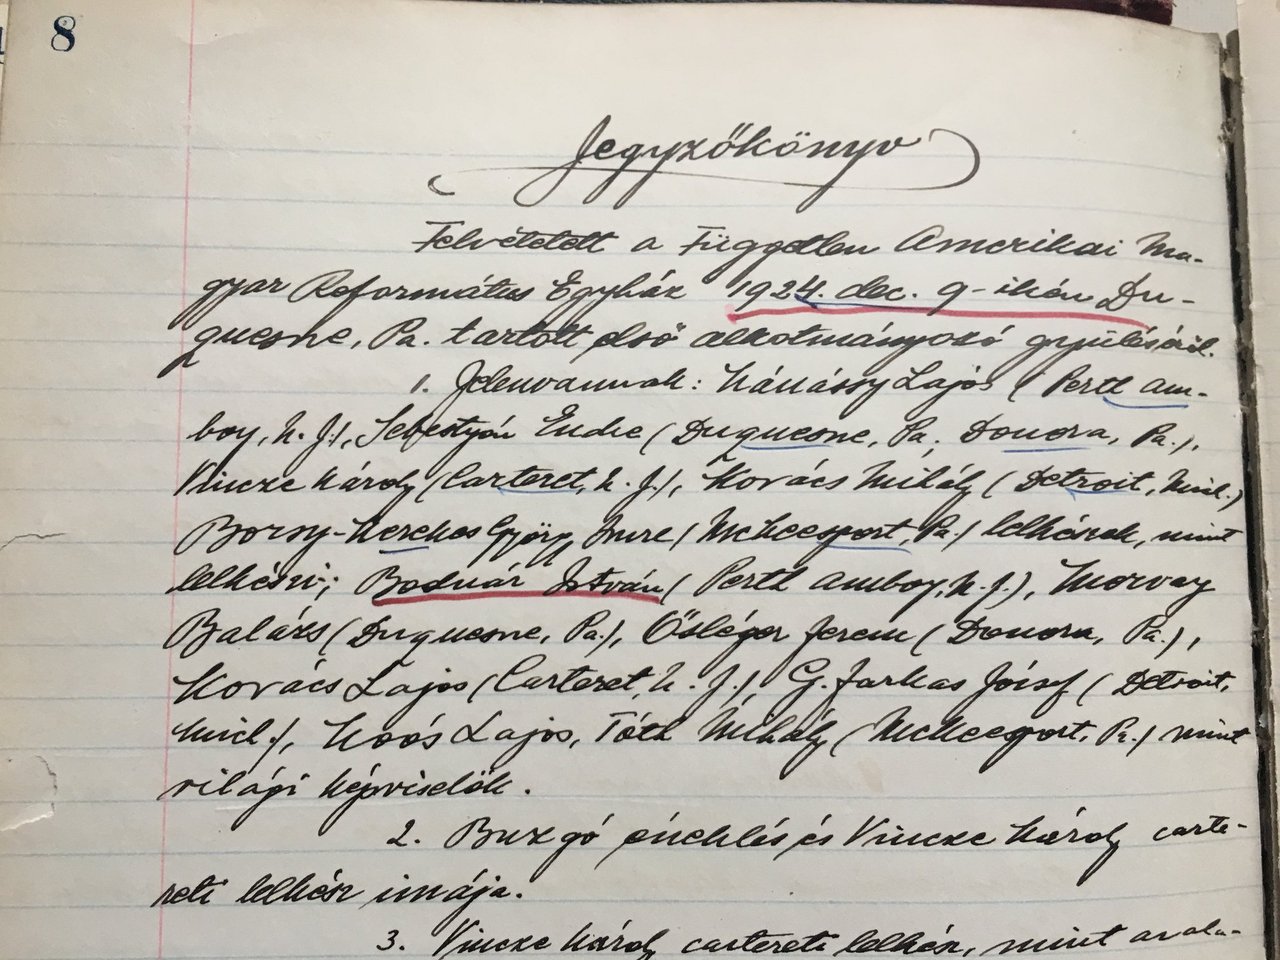 8
Jegyzőkönyv
Felvétetett a Független Amerikai Ma-
gyar Református Egyház 1924. dec. 9-ikén Du-
quesne, Pa. tartott első alkotmányozó gyűléséről.
1. Jelenvannak: Nánássy Lajos (Perth Am-
boy, N. J.), Sebestyén Endre (Duquesne, Pa, Donora, Pa.),
Vincze Károly (Carteret, N. J.), Kovács Mihály (Detroit, Mich.)
Borsy-Kerekes György, Imre (McKeesport, Pa.) lelkészek, mint
lelkészi; Bodnár István (Perth Amboy, N. J.), Morvay
Balázs (Duquesne, Pa.), Öslégor Ferenc (Donora, Pa.),
Kovács Lajos (Carteret, N. J.), G. Farkas József (Detroit,
Mich.), Koós Lajos, Tóth Mihály (McKeesport, Pa.) mint
világi képviselők.
2. Buzgó éneklés és Vincze Károly carte-
reti lelkész imája.
3. Vincze Károly cartereti lelkész, mint az ala-